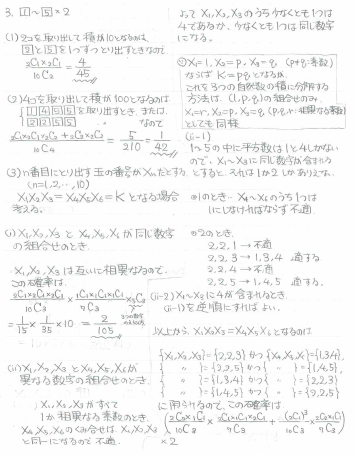 3. ①～⑤ × 2
(1) 2コを取り出して積が10となるのは、
②と⑤を1つずつとり出すときなので
2C1×2C1 / 10C2 = 4/45
(2) 4コを取り出して積が100となるのは
{①④⑤⑤を取り出すとき、または
②②⑤⑤ 〃 なので
2C1×2C1×2C2 + 2C2×2C2 / 10C4 = 5/210 = 1/42
(3) n番目にとり出す玉の番号がXnだとする
(n=1,2,…,10)
X1X2X3 = X4X5X6 = K となる場合
考える。
(i) X1, X2, X3 と X4, X5, X6 が同じ数字
の組合せのとき、
X1, X2, X3 は互いに相異なるので、
この確率は、
2C1×2C1×2C1 / 10C3 × 1C1×1C1×1C1 / 7C3 × 5C3
= 1/15 × 1/35 × 10 = 2/105
(ii) X1, X2, X3 と X4, X5, X6が
異なる数字の組合せのとき、
X1, X2, X3がすべて
1か相異なる素数のとき、
X4, X5, X6のくみ合せは、X1, X2, X3
と同一になるので不適。
よって X1, X2, X3 のうち少なくとも1つは
4であるか、少なくとも1つは同じ数字
になる。
X1=1, X2=p, X3=q (p≠q:素数)
ならば K=pqとなるが、
これを3つの自然数の積に分解する
方法は、(1,p,q)の組合せのみ
X1=r, X2=p, X3=q (p,q,r:相異なる素数)
としても同様
(ii-1)
1～5の中に平方数は1と4しかない
ので、X1～X3に同じ数字が含まれる
とすると、それは1か2しかありえない。
①のとき、X4～X6のうち1つは
1にしなければならず不適
②のとき、
2,2,1 → 不適
2,2,3 → 1,3,4 適する
2,2,4 → 不適
2,2,5 → 1,4,5 適する
(ii-2) X1～X3に4が含まれるとき、
(ii-1)を逆順にすればよい。
以上から、X1X2X3=X4X5X6となるのは
{X1,X2,X3}={2,2,3} かつ {X4,X5,X6}={1,3,4},
{ 〃 }={2,2,5} かつ { 〃 }={1,4,5},
{ 〃 }={1,3,4} かつ { 〃 }={2,2,3},
{ 〃 }={1,4,5} かつ { 〃 }={2,2,5}
に限られるので、この確率は、
(2C2×2C1 / 10C3 × 2C1×1C1×2C1 / 7C3 + (2C1)³ / 10C3 × 2C2×1C1 / 7C3)
×2